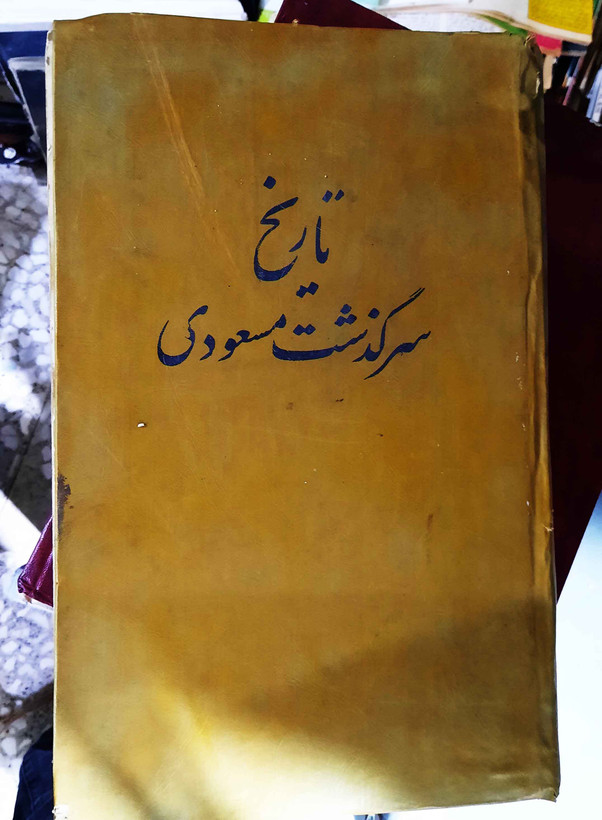 تاریخ
سرگذشت مسعودی